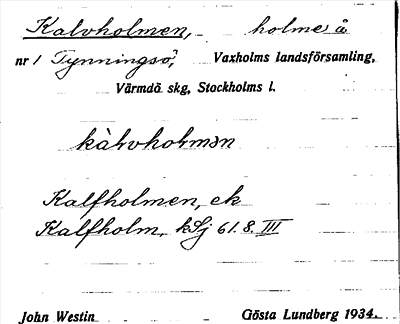 Kalvholmen, holme å
nr 1 Tynningsö, Vaxholms landsförsamling,
Värmdö skg, Stockholms l.
kàlvholmən
Kalfholmen, ek
Kalfholm, kSj 61.8.III
John Westin Gösta Lundberg 1934.